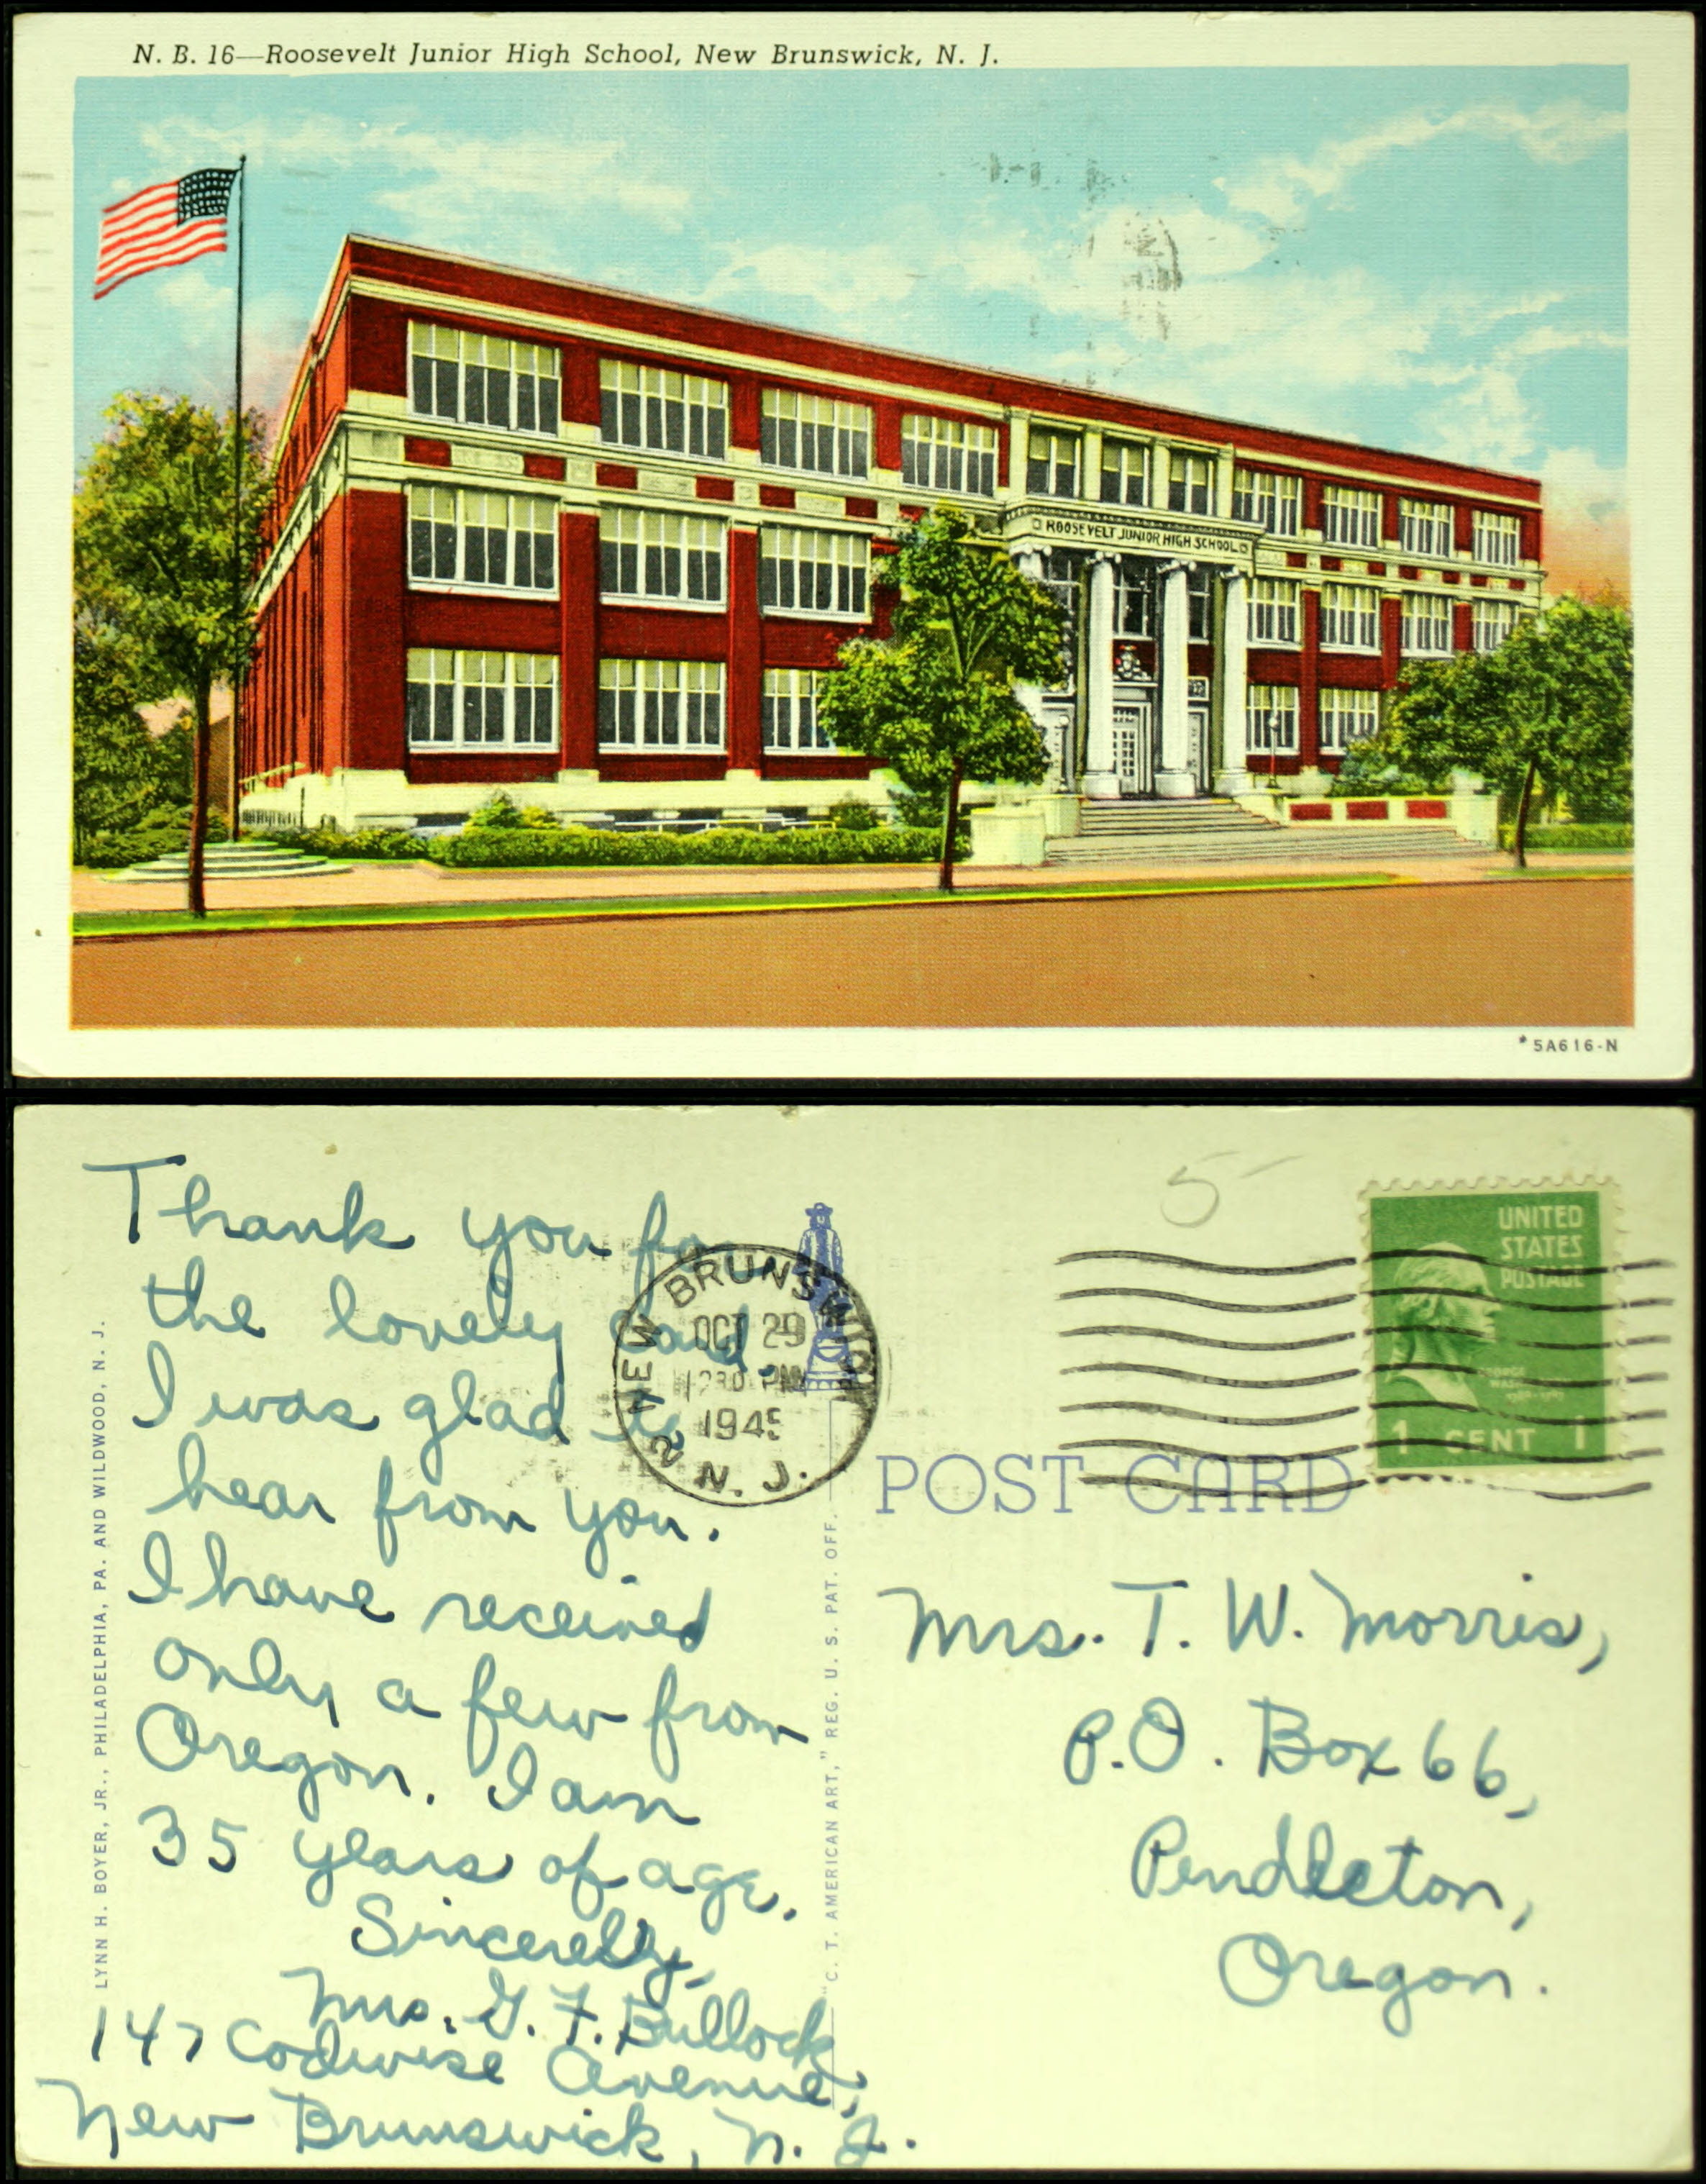 N. B. 16—Roosevelt Junior High School, New Brunswick, N. J.
ROOSEVELT JUNIOR HIGH SCHOOL
*5A616-N
Thank you for
the lovely card.
I was glad to
hear from you.
I have received
only a few from
Oregon. I am
35 years of age.
Sincerely,
Mrs. G. F. Bullock,
147 Codwise Avenue,
New Brunswick, N. J.
LYNN H. BOYER, JR., PHILADELPHIA, PA. AND WILDWOOD, N. J.
NEW BRUNSWICK
OCT 29
1230 PM
1945
2
N. J.
"C. T. AMERICAN ART," REG. U. S. PAT. OFF.
5-
UNITED
STATES
POSTAGE
1 CENT 1
POST CARD
Mrs. T. W. Morris,
P.O. Box 66,
Pendleton,
Oregon.